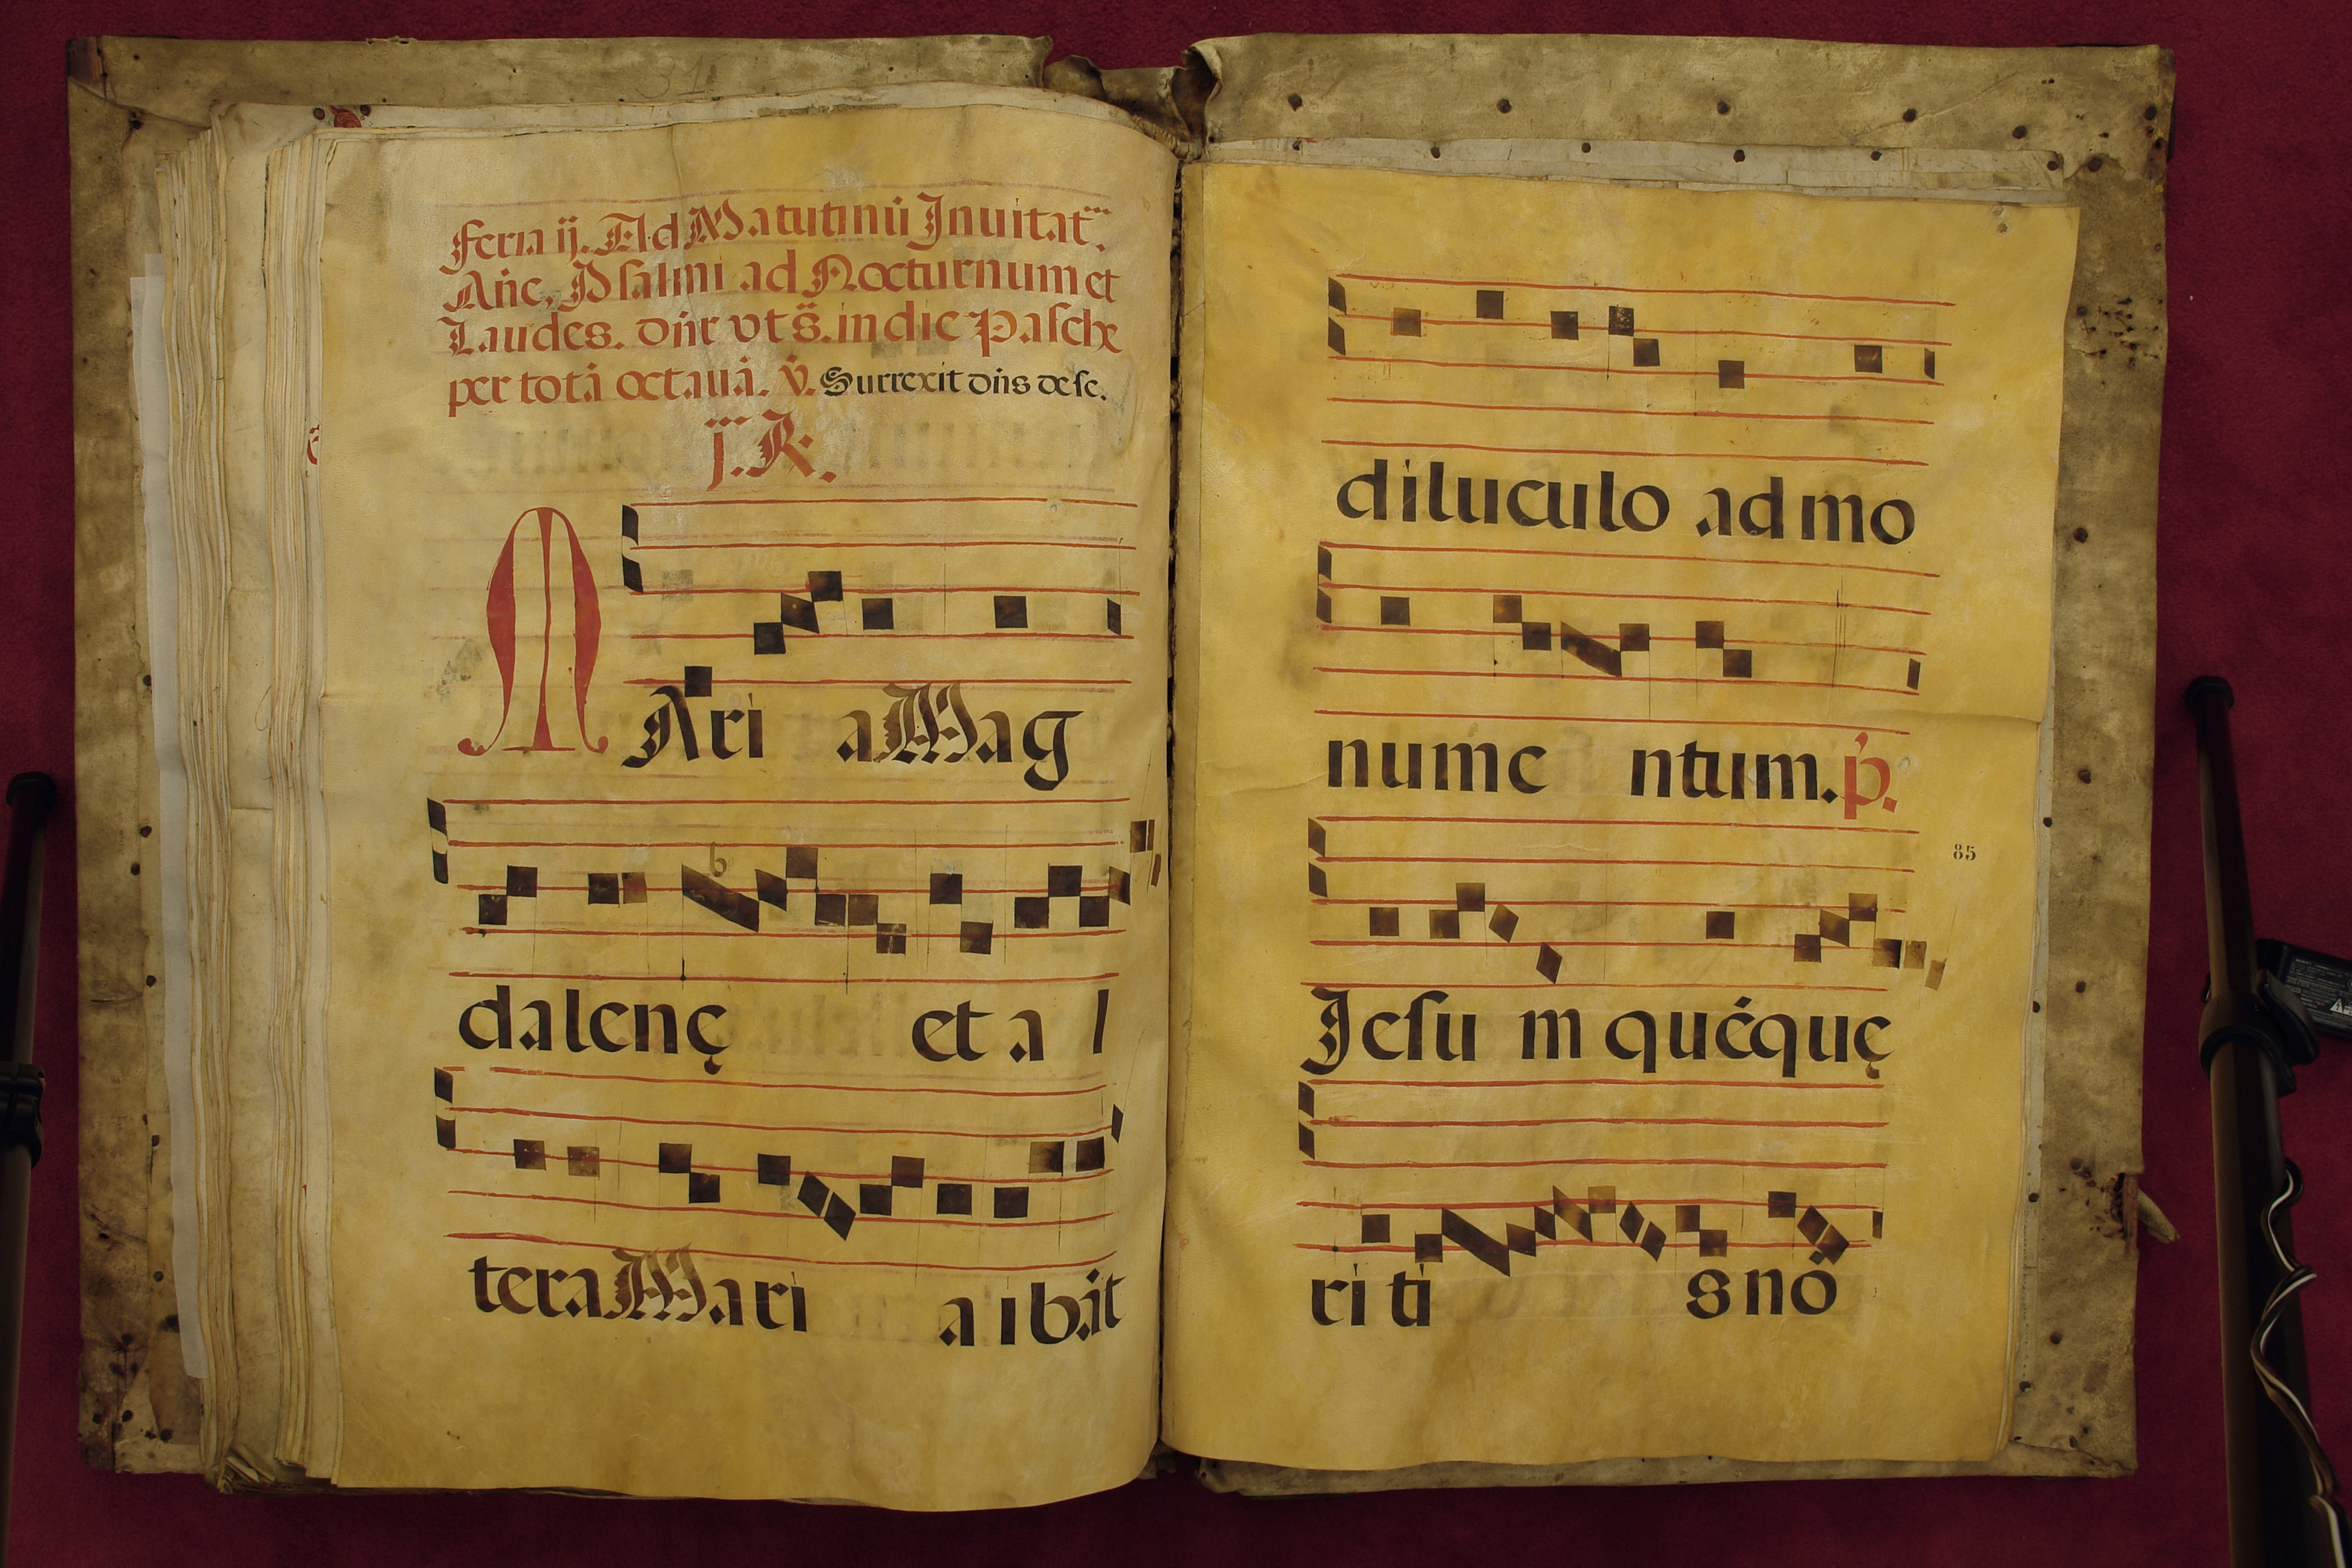 Feria ij. Ad Matutinū Inuitat.
Añe, Psalmi ad Nocturnum et
Laudes. dnr vt s̄. in die Pasche
per totā octauā. V̄. Surrexit dn̄s de se.
j. R.
MAri a Mag
dalenę et a l
tera Mari a ibāt
diluculo ad mo
nume ntum. p̄.
Jesu m quéquę
ri ti s nō
85
31